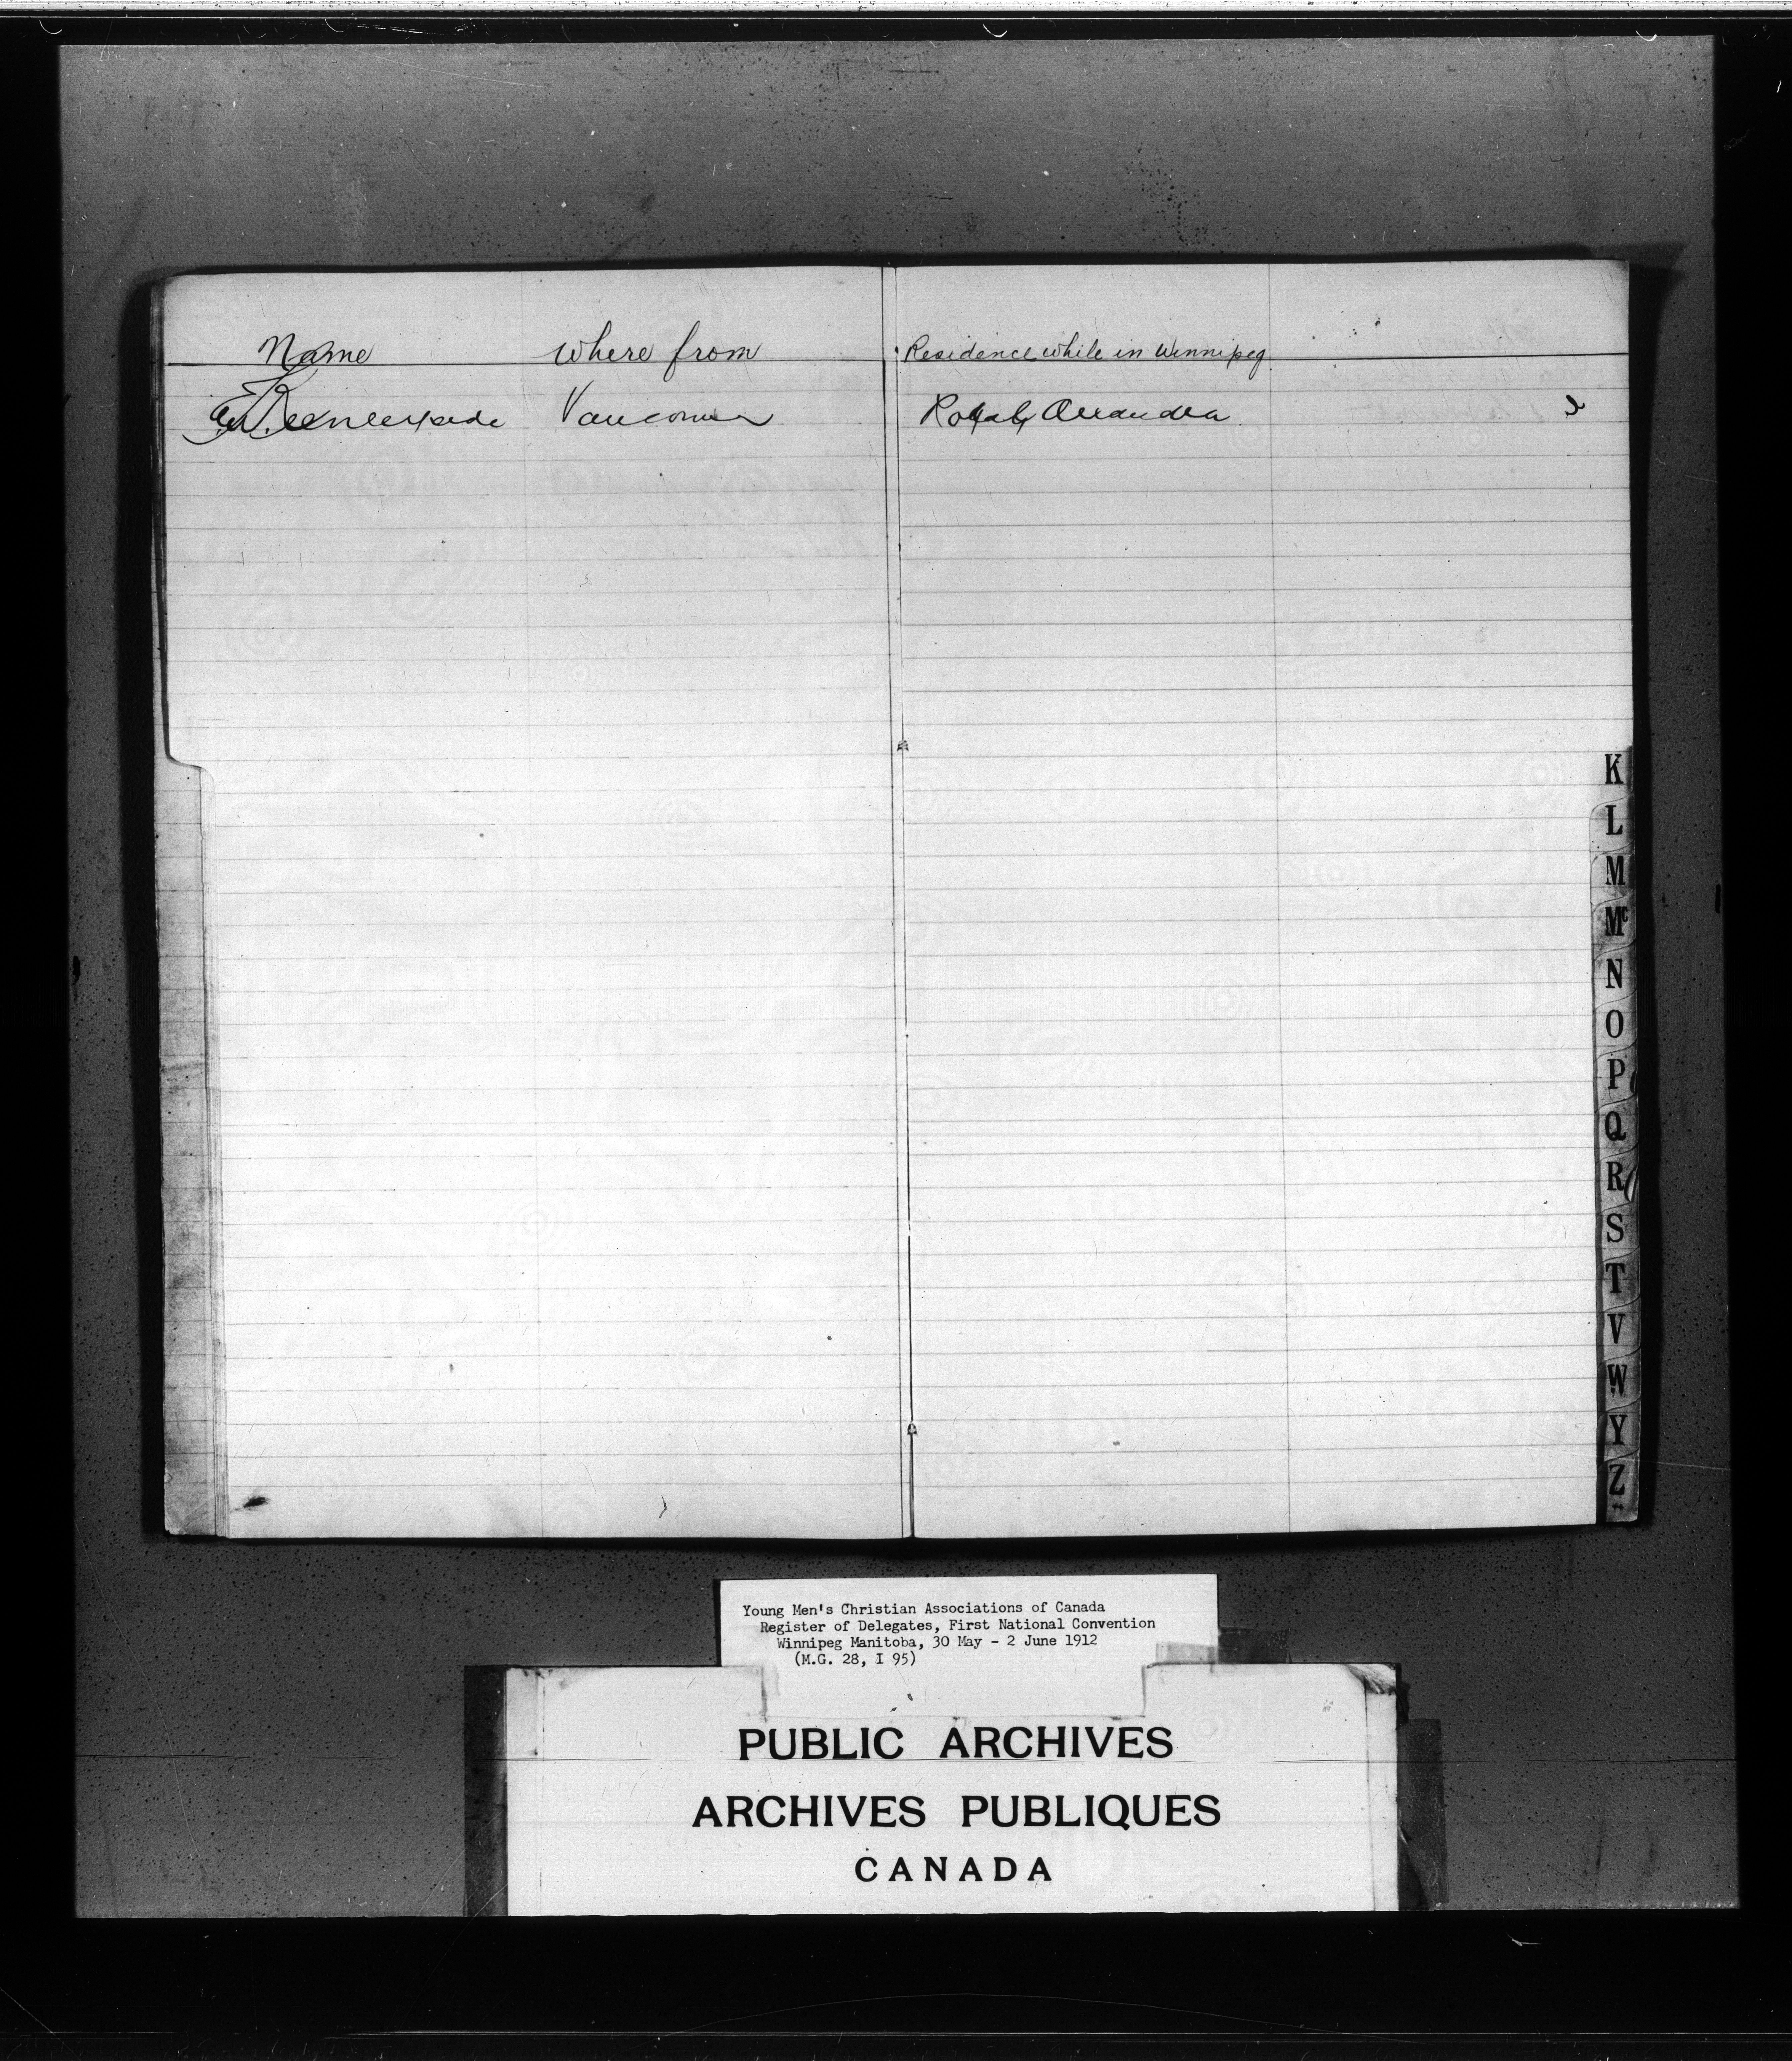 Name where from Residence while in Winnipeg
E.W. Keenleyside Vancouver Royal Alexandra
K
L
M
Mc
N
O
P
Q
R
S
T
V
W
Y
Z
Young Men's Christian Associations of Canada
Register of Delegates, First National Convention
Winnipeg Manitoba, 30 May - 2 June 1912
(M.G. 28, I 95)
PUBLIC ARCHIVES
ARCHIVES PUBLIQUES
CANADA